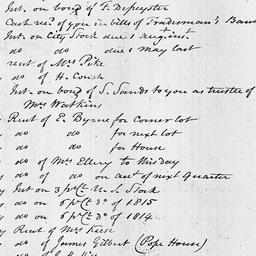 Int. on bond of F. Depeyster
Cash rec'd of you in bills of Tradesman's Bank
Int. on City Stock due 1 August
do do due 1 May last
rent of Mrs Pike
do of H. Cough
Int. on bond of S. Sands to you as trustee of
Mrs Watkins
Rent of E. Byrne for corner lot
do do for next lot
do do for House
do of Mrs Ellery to this day
do of do on acct of next quarter
Int on 3 pr Ct U. S. Stock
do on 6 pr Ct do of 1815
do on 6 pr Ct do of 1814
Rent of Mrs Keese
do of James Gilbert (Pope House)
do